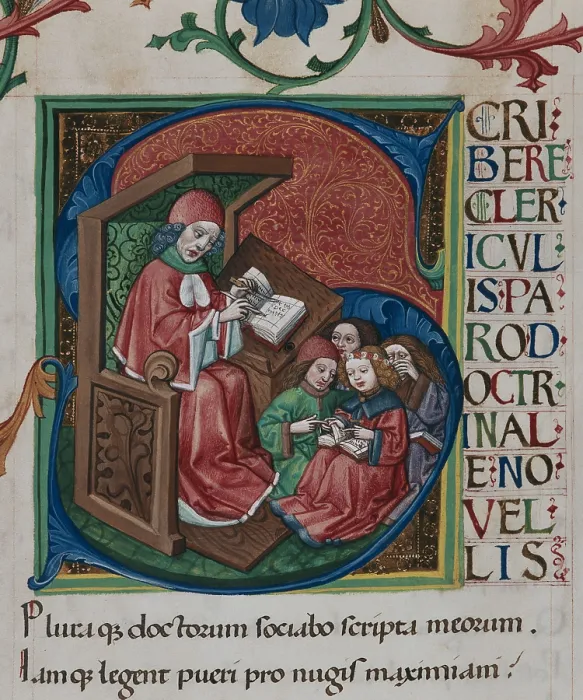 SCRI
BERE
CLER
ICVL
IS·PA
ROD·
OCTR·
INAL·
E·NO·
VEL·
LIS
Pluraqꝫ doctorum sociabo scripta meorum .
Iamqꝫ legent pueri pro nugis maximiani :